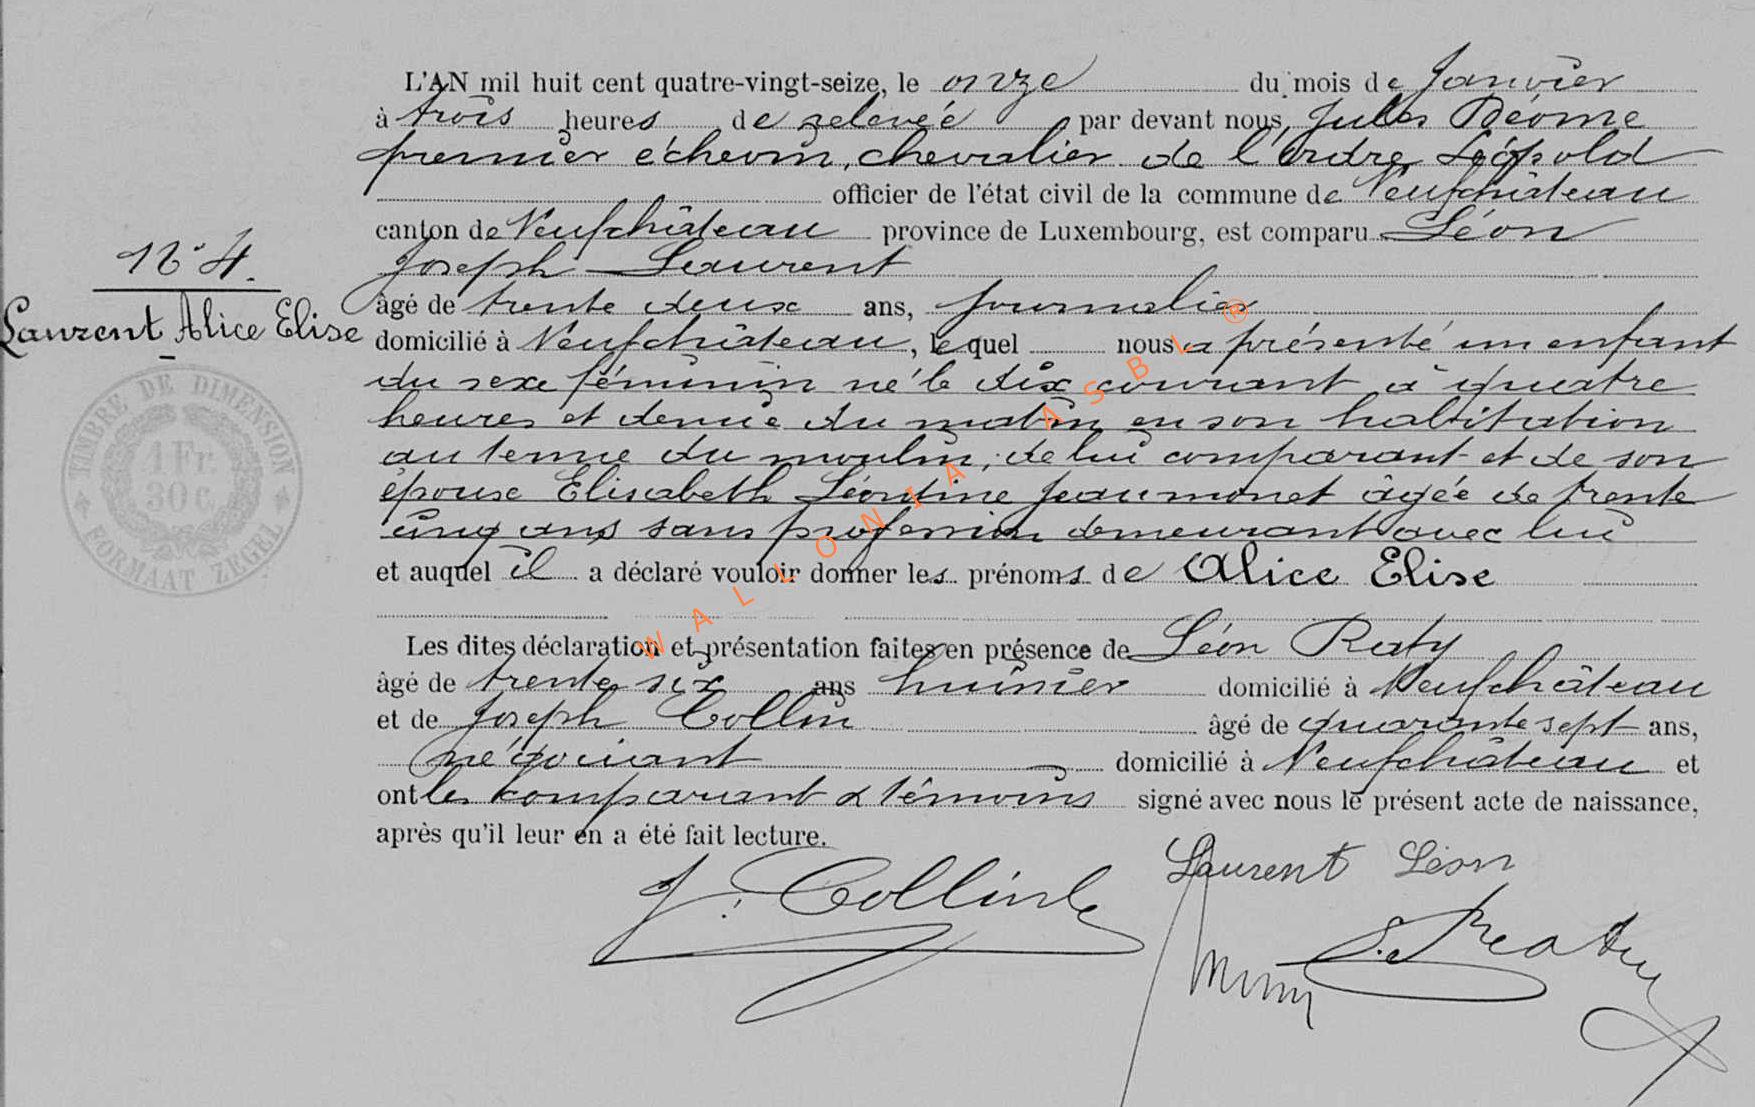 L'AN mil huit cent quatre-vingt-seize, le onze du mois de Janvier
à trois heures de relevée par devant nous, Jules Déome
premier échevin, chevalier de l'Ordre Léopold
officier de l'état civil de la commune de Neufchâteau
canton de Neufchâteau province de Luxembourg, est comparu Léon
Joseph Laurent
N° 4.
Laurent Alice Elise
âgé de trente deux ans, journalier
domicilié à Neufchâteau, lequel nous a présenté un enfant
du sexe féminin né le dix courant à quatre
heures et demie du matin en son habitation
au terme du moulin, de lui comparant et de son
épouse Elisabeth Léontine Jeaumonet âgée de trente
cinq ans sans profession demeurant avec lui
et auquel il a déclaré vouloir donner les prénoms de Alice Elise
Les dites déclaration et présentation faites en présence de Léon Raty
âgé de trente six ans huissier domicilié à Neufchâteau
et de Joseph Collin âgé de quarante sept ans,
négociant domicilié à Neufchâteau et
ont les comparant & témoins signé avec nous le présent acte de naissance,
après qu'il leur en a été fait lecture.
Laurent Léon
J. Collin
L. Raty
TIMBRE DE DIMENSION
1 Fr.
30 c.
FORMAAT ZEGEL
WALLONIA ASBL ®